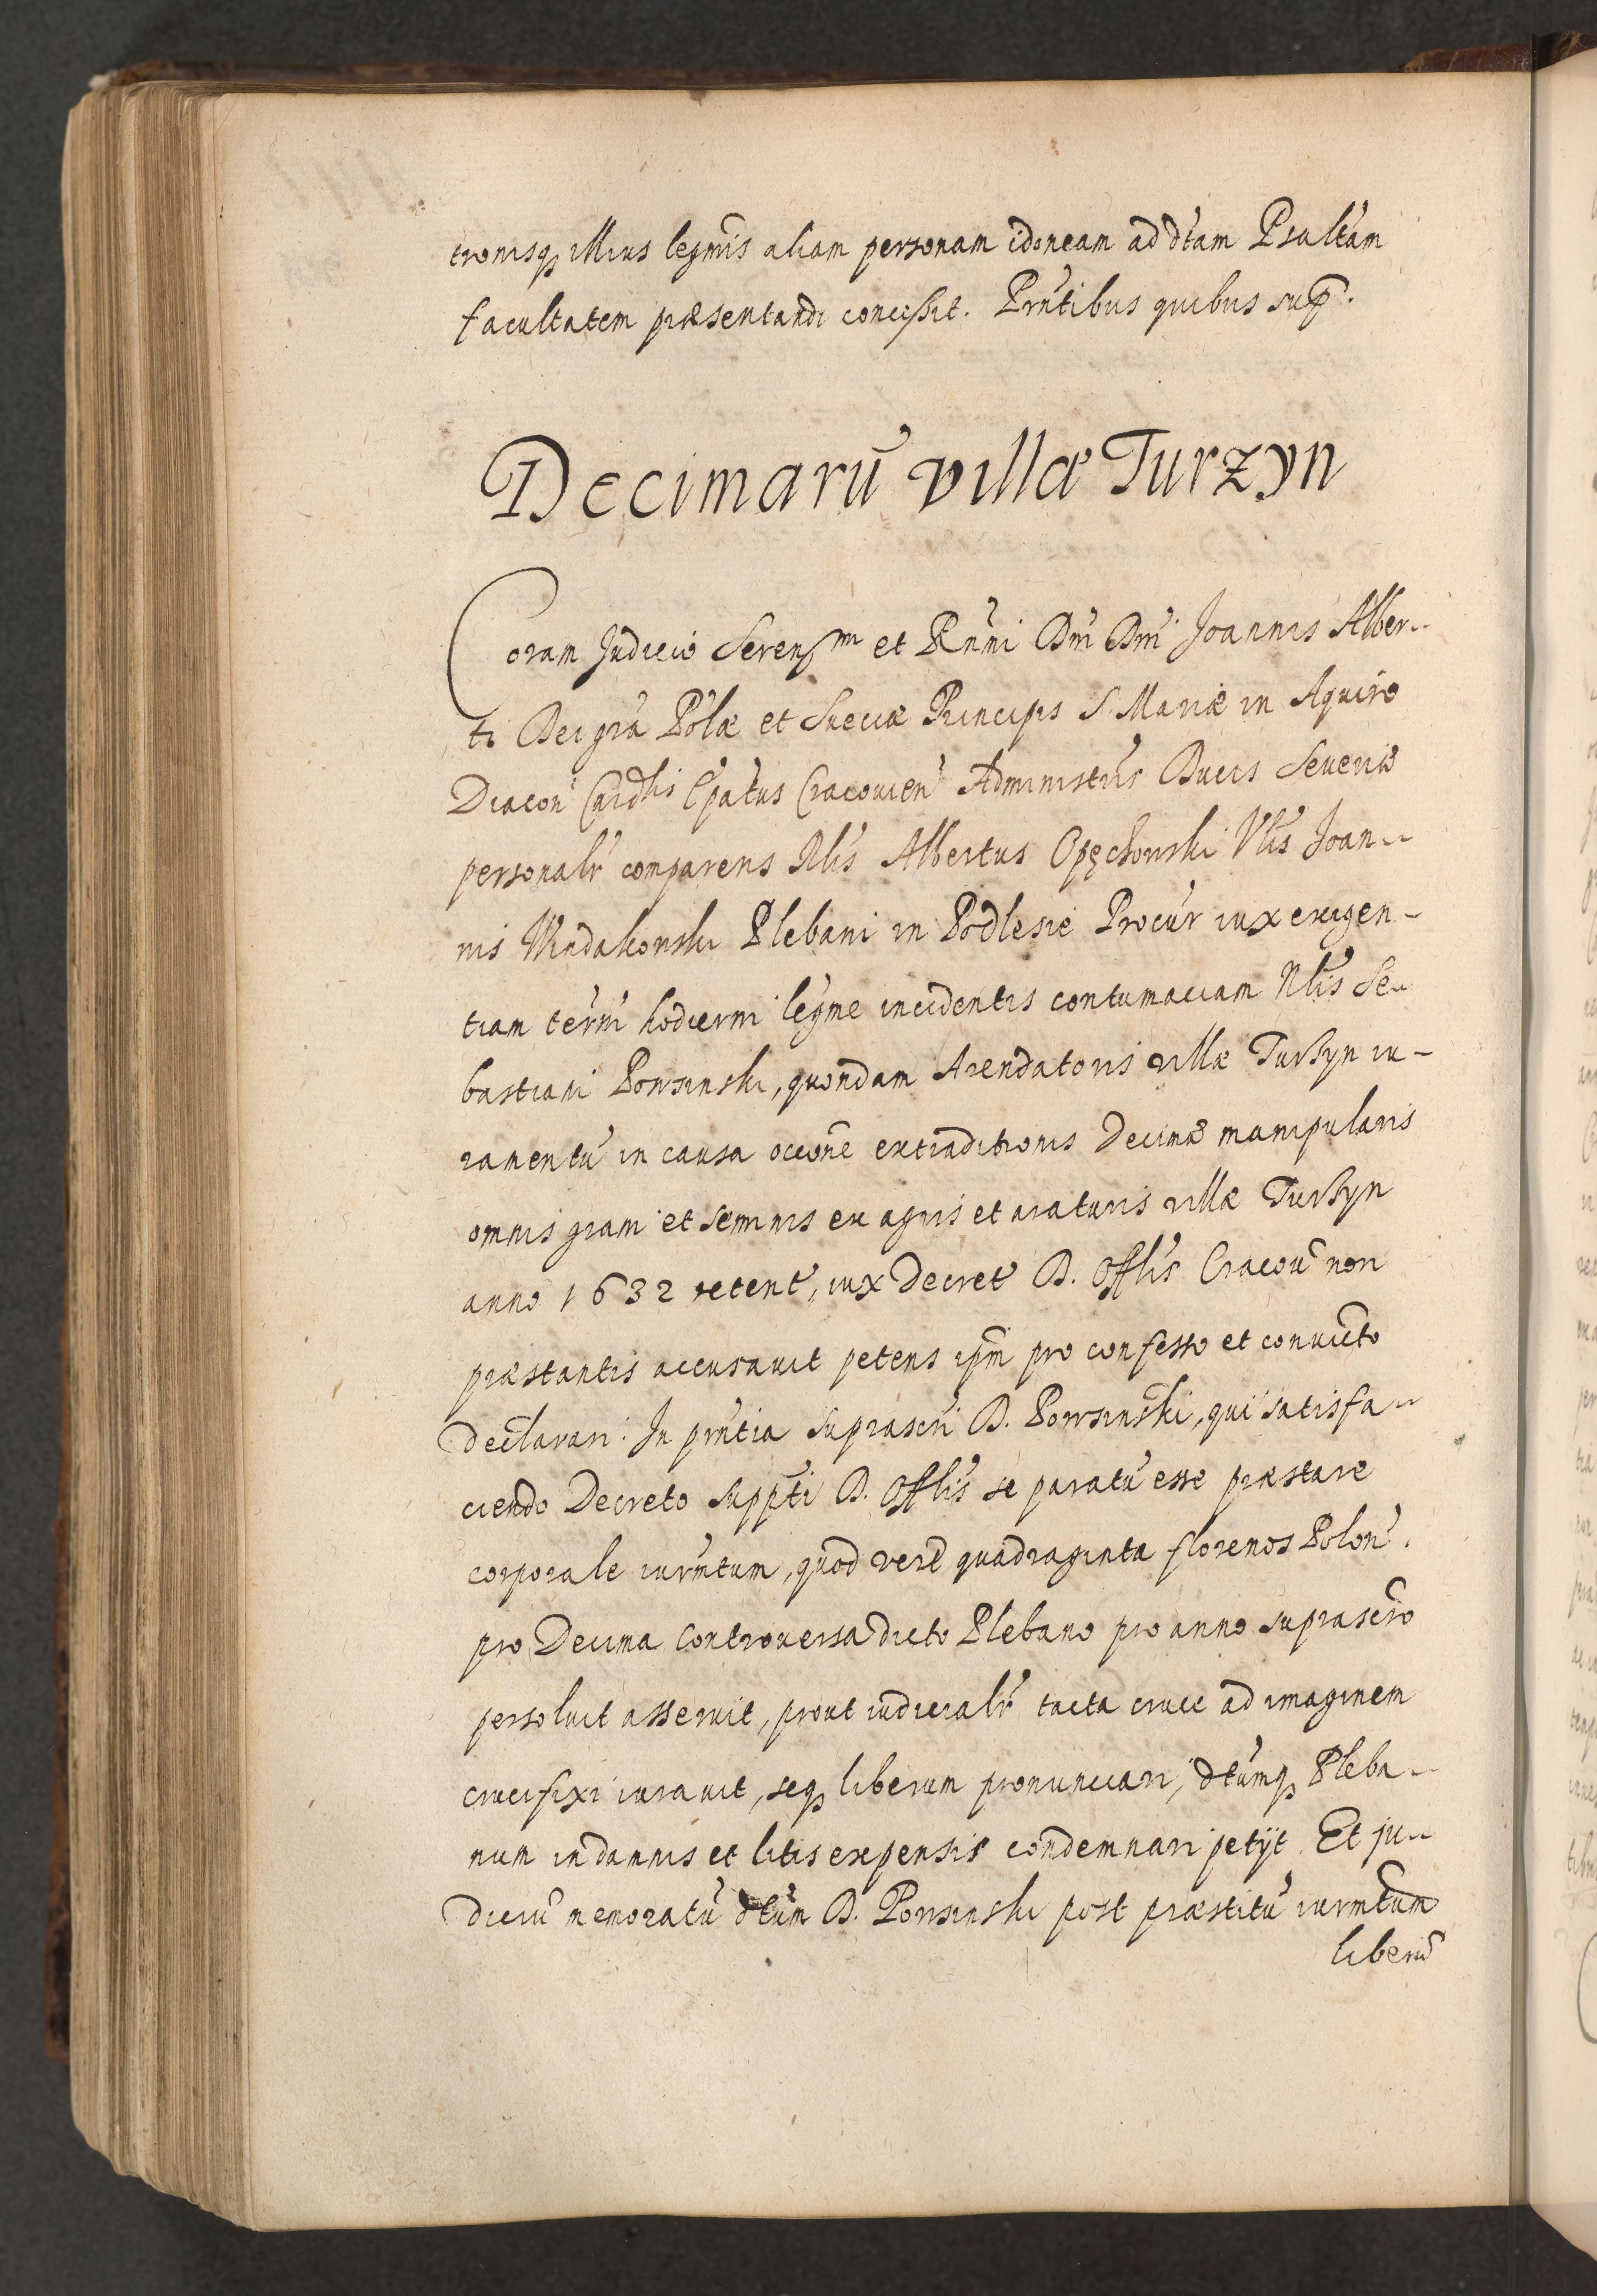 tronisq illius legmis aliam personam idoneam ad dtam Psaltam
facultatem præsentandi concessit. Prntibus quibus sup.
Decimarū villæ Turzyn
Coram Judicio Serenssmi et Rnni Dni Dni Joannis Alber-
ti Dei gra Polæ et Sueciæ Principis S Mariæ in Aquiro
Diacon Cardlis Epatus Cracovien Administris Ducis Severiæ
personalr comparens Nlis Albertus Opęchowski Vlis Joan-
nis Plebani in Podlesie Procur iux exigen-
tiam termi hodierni legme incidentis contumaciam Nlis Se-
bastiani Powsinski, quondam Arendatoris villæ Turßyn iu-
ramentū in causa occone extraditionis Decimæ manipularis
omnis grani et seminis ex agris et araturis villæ Turßyn
anno 1632 retent, iux Decret D. Offlis Cracov non
præstantis accusavit petens ipm pro confesso et convicto
declarari. In prntia suprascri D. Powsinski, qui satisfa-
ciendo Decreto suppti D. Offlis se paratū esse præstare
corporale iurmtum, quod vere quadraginta florenos Polon.
pro Decima controversa dicto Plebano pro anno suprascro
persolvit asseruit, prout iudicialr tacta cruce ad imaginem
crucifixi iuravit, seq liberum pronunciari, dtumq Pleba-
num in damnis et litis expensis condemnari petijt. Et ju-
diciū memoratū dtum D. Powsinski post præstitū iurmtum
liberū